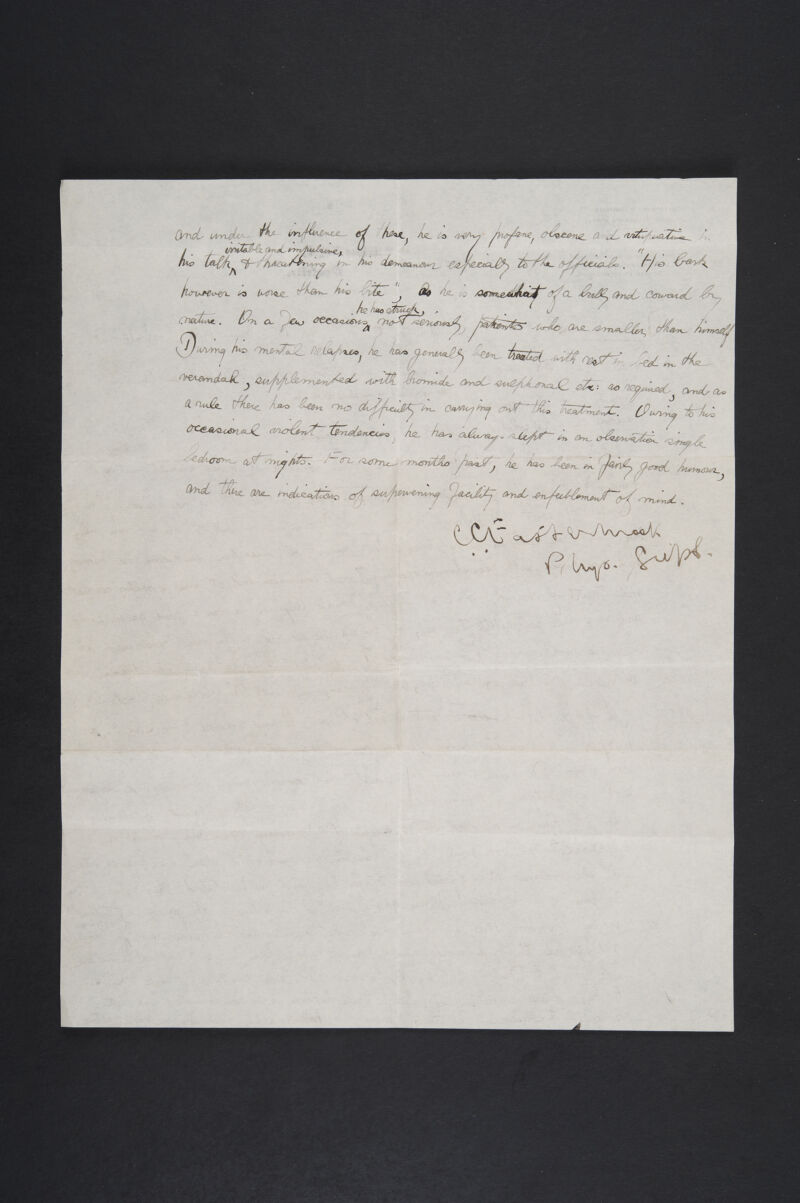 and under the influence of these, he is very profane, obscene and vituperative in
his talk, irritable and impulsive, & threatening in his demeanour especially to the officials. "His bark
however is worse than his bite", as he is somewhat of a bully and coward by
nature. On a few occasions he has struck, not seriously, patients who are smaller than himself
During his mental relapses, he has generally been treated with rest in bed in the
verandah, supplemented with bromide and sulphonal etc: as required, and as
a rule there has been no difficulty in carrying out this treatment. Owing to his
occasional violent tendencies, he has always slept in an observation single
bedroom at nights. For some months past, he has been in fairly good humour,
and there are indications of supervening facility and enfeeblement of mind.
C.C. Easterbrook
Phys. Supt.